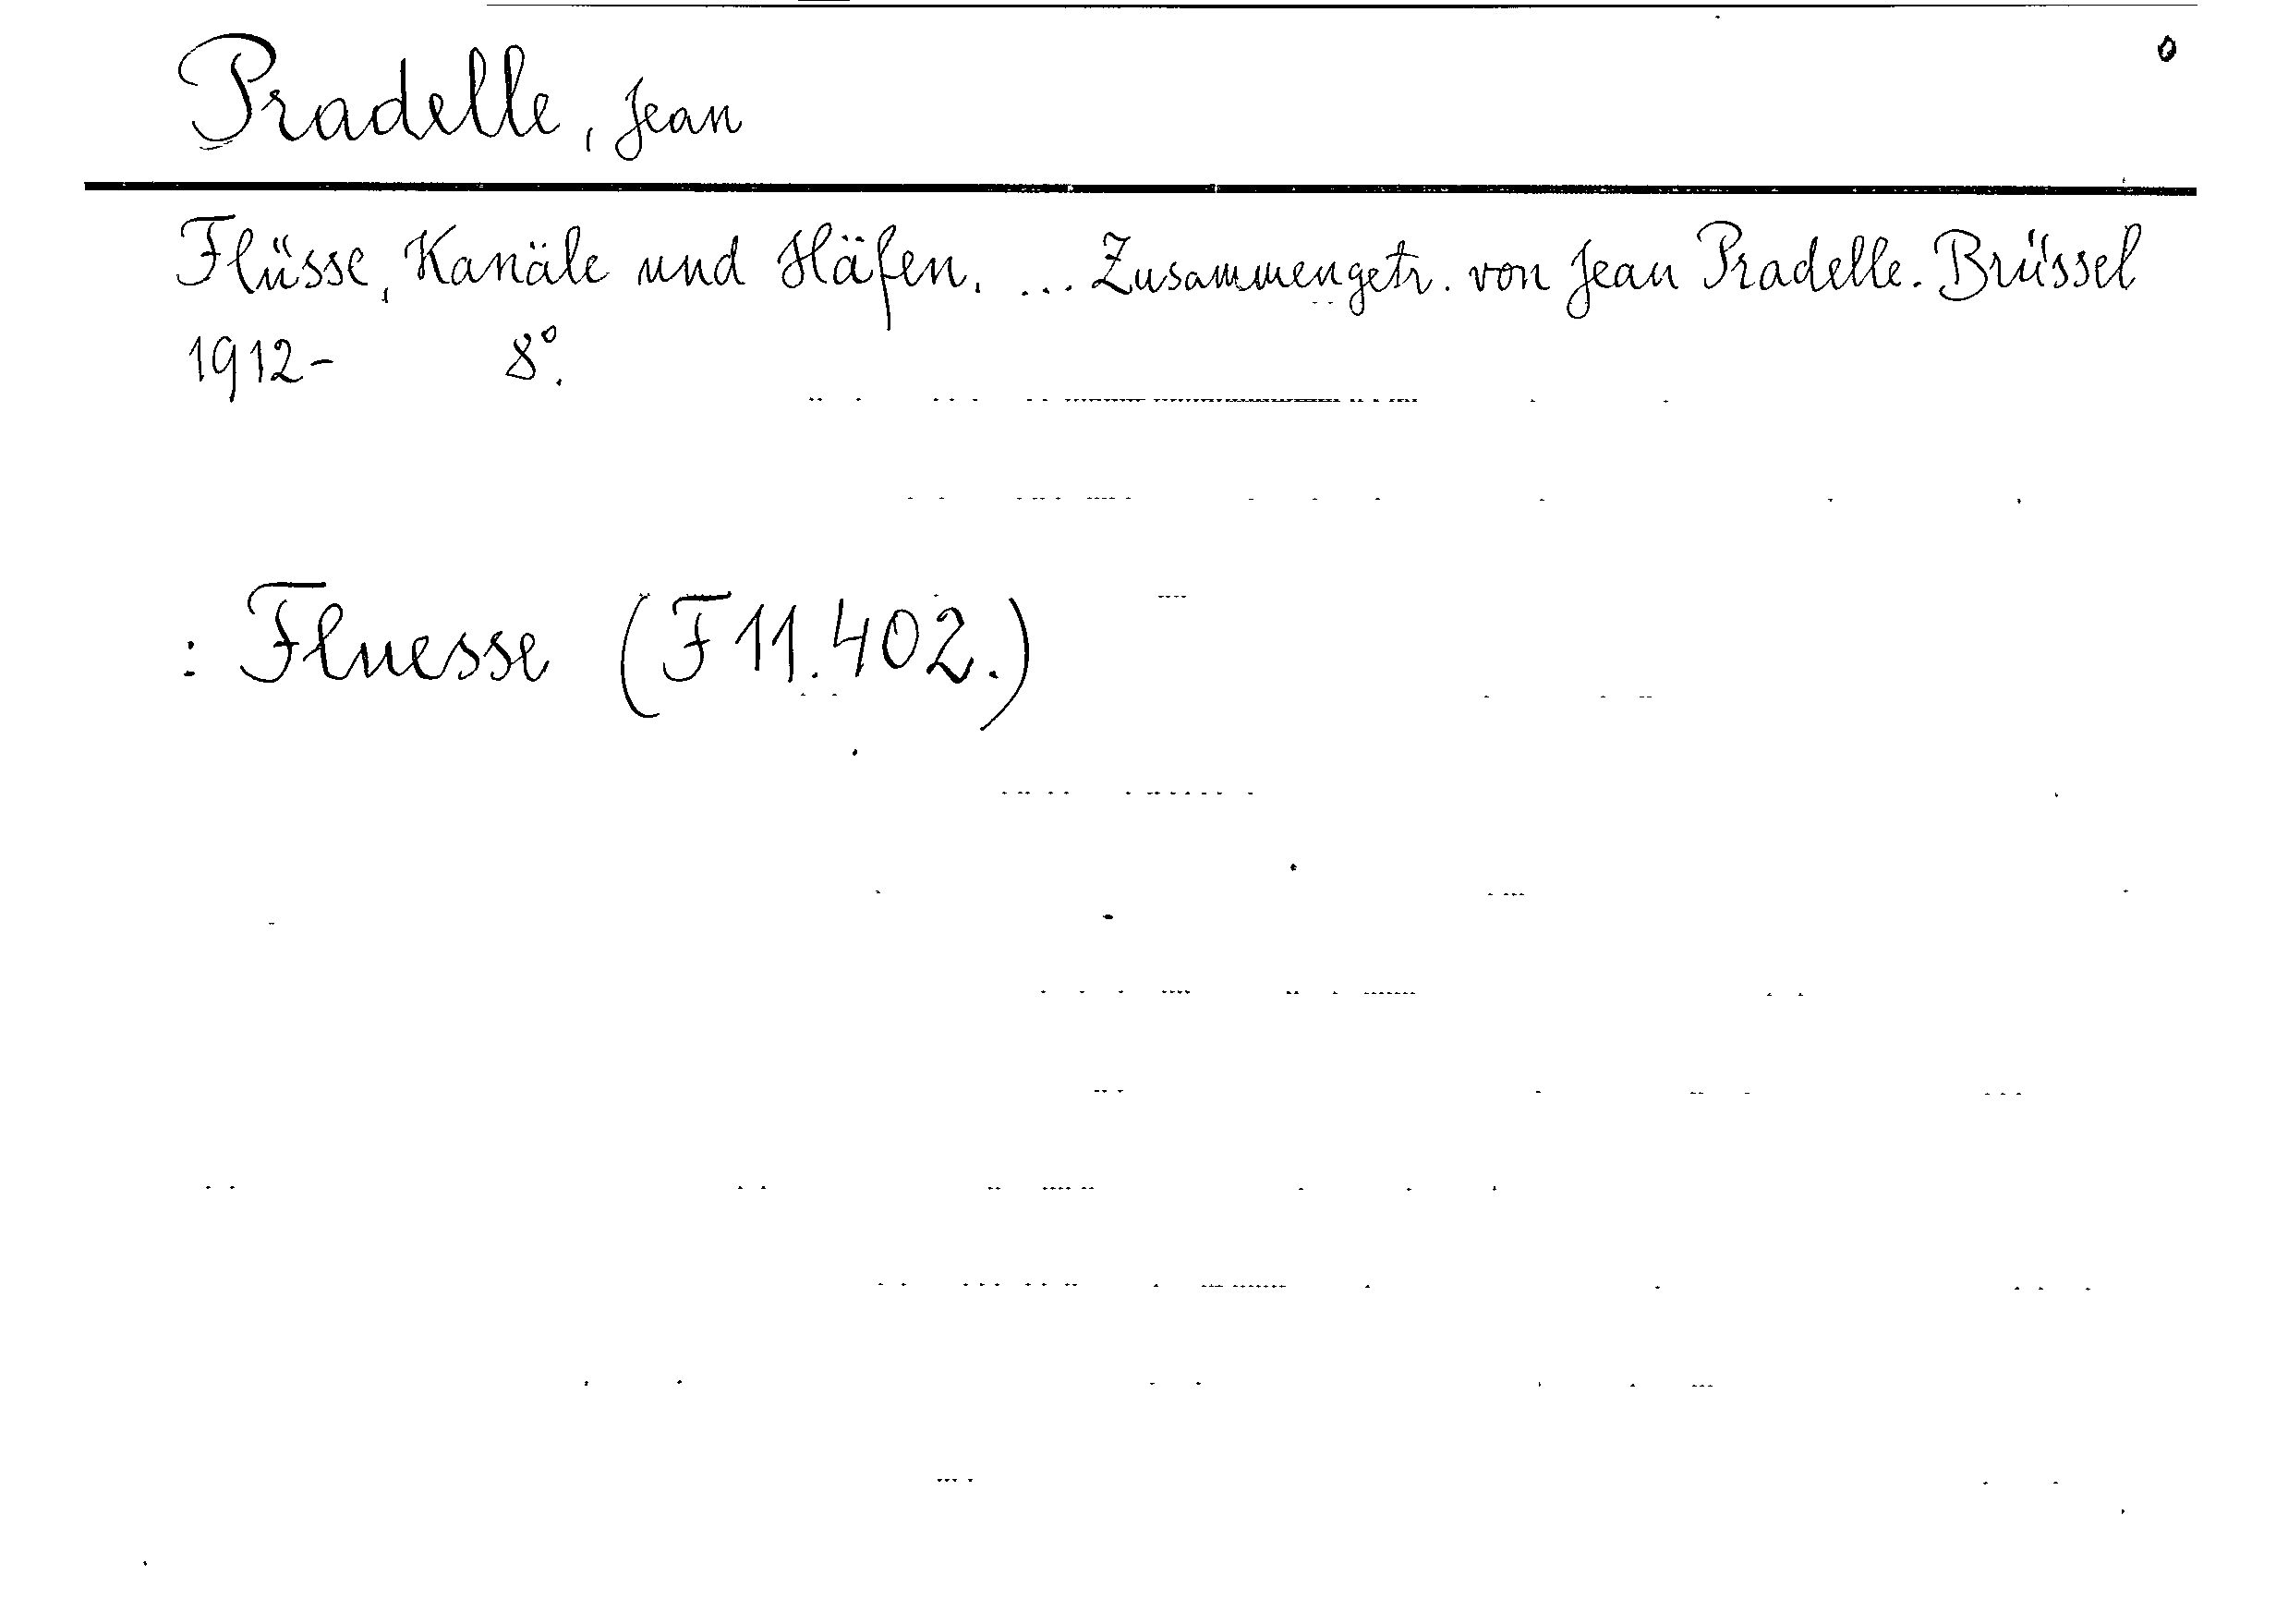 o
Pradelle, Jean
Flüsse, Kanäle und Häfen. ... Zusammengetr. von Jean Pradelle. Brüssel
1912- 8°.
: Fluesse (F 11.402.)